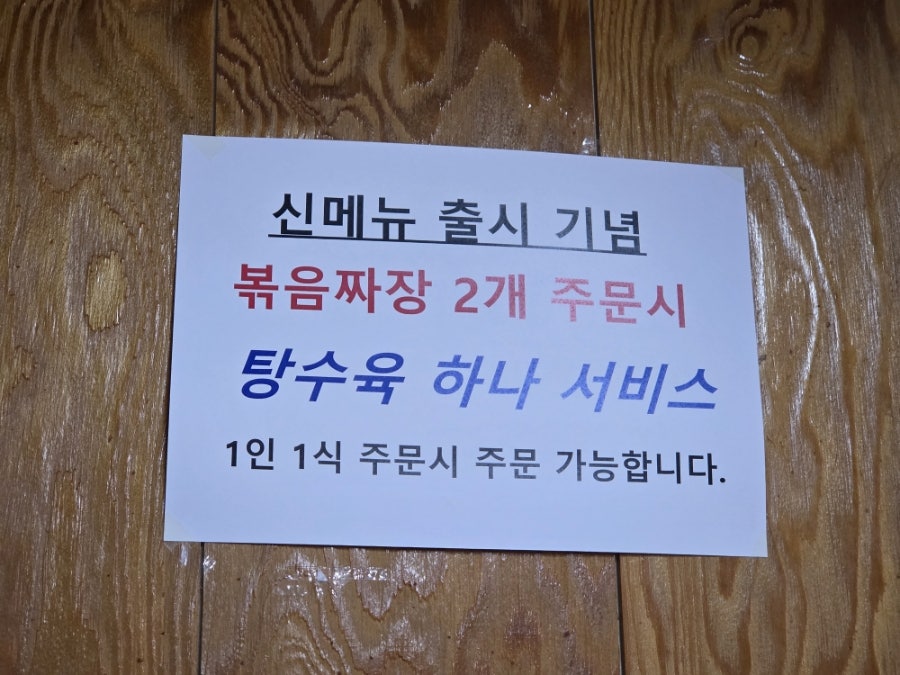 신메뉴 출시 기념
볶음짜장 2개 주문시
탕수육 하나 서비스
1인 1식 주문시 주문 가능합니다.